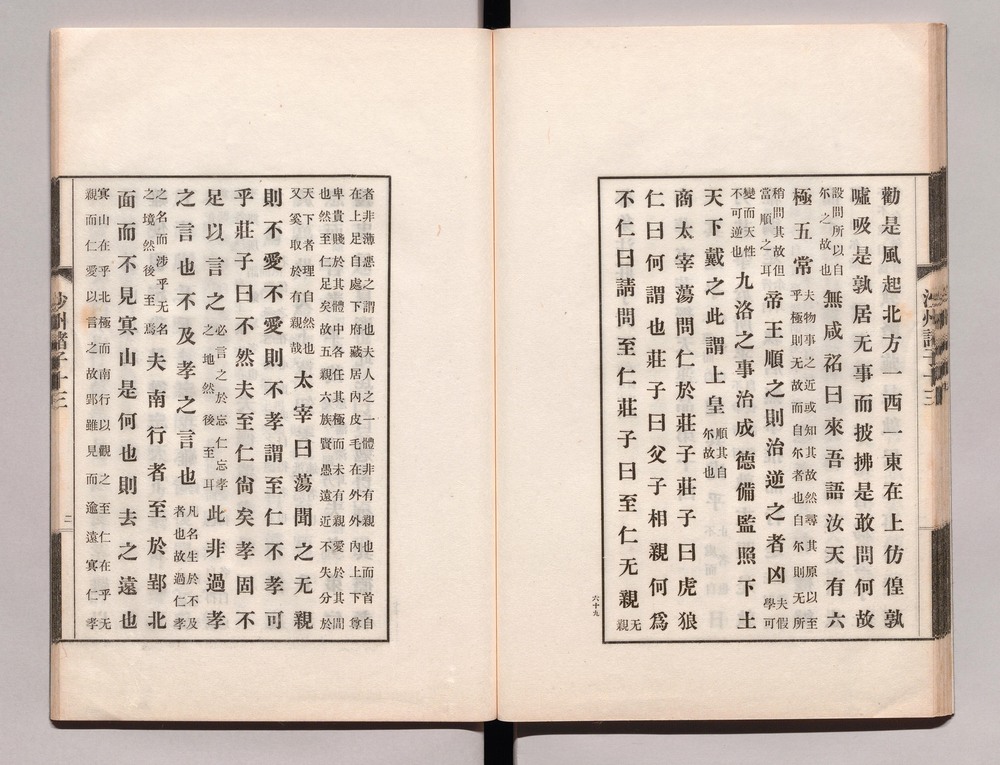 勸是風起北方一西一東在上仿偟孰
噓吸是孰居无事而披拂是敢問何故
設問所以自
尒之故也
無咸祒曰來吾語汝天有六
極五常
夫物事之近或知其故然尋其原以至
乎極則无故而自尒者也自尒則无所
稍問其故但
當順之耳
帝王順之則治逆之者凶
夫假
學可
變而天性
不可逆也
九洛之事治成德備監照下土
天下戴之此謂上皇
順其自
尒故也
商太宰蕩問仁於莊子莊子曰虎狼
仁曰何謂也莊子曰父子相親何爲
不仁曰請問至仁莊子曰至仁无親
无
親
六十九
者非薄惡之謂也夫人之一體非有親也而首自
在上足自處下府藏居內皮毛在外外內上下尊
卑貴賤於其體中各任其極而未有親愛於其間
也然至仁足矣故五親六族賢愚遠近不失分於
天下者理自然也
又奚取於有親哉
太宰曰蕩聞之无親
則不愛不愛則不孝謂至仁不孝可
乎莊子曰不然夫至仁尙矣孝固不
足以言之
必言之於忘仁忘孝
之地然後至耳
此非過孝
之言也不及孝之言也
凡名生於不及
者也故過仁孝
之名而涉乎无名
之境然後至焉
夫南行者至於郢北
面而不見冥山是何也則去之遠也
冥山在乎北極而南行以觀之至仁在乎无
親而仁愛以言之故郢雖見而逾遠冥仁孝
沙州諸子十三
二